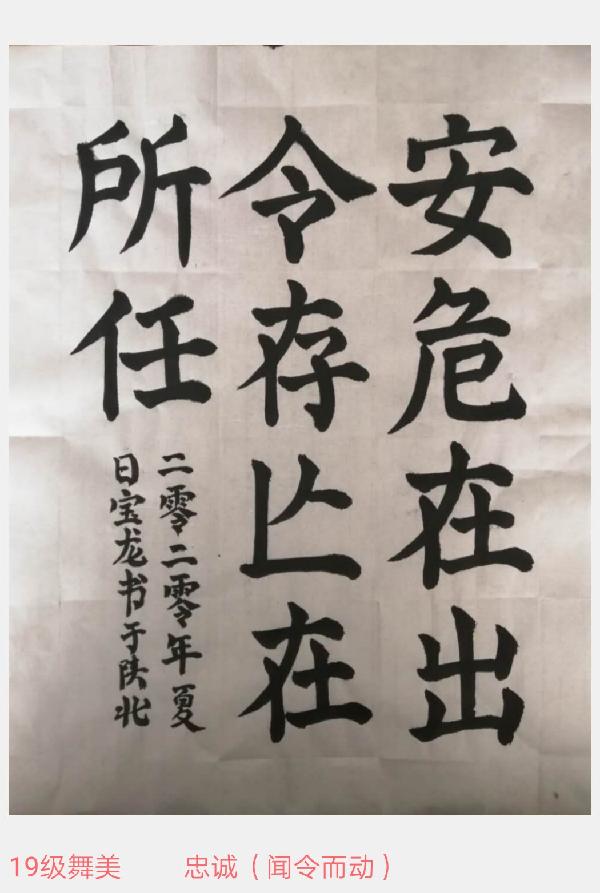 安危在出
令存亾在
所任
二零二零年夏
日宝龙书于陕北
19级舞美 忠诚(闻令而动)